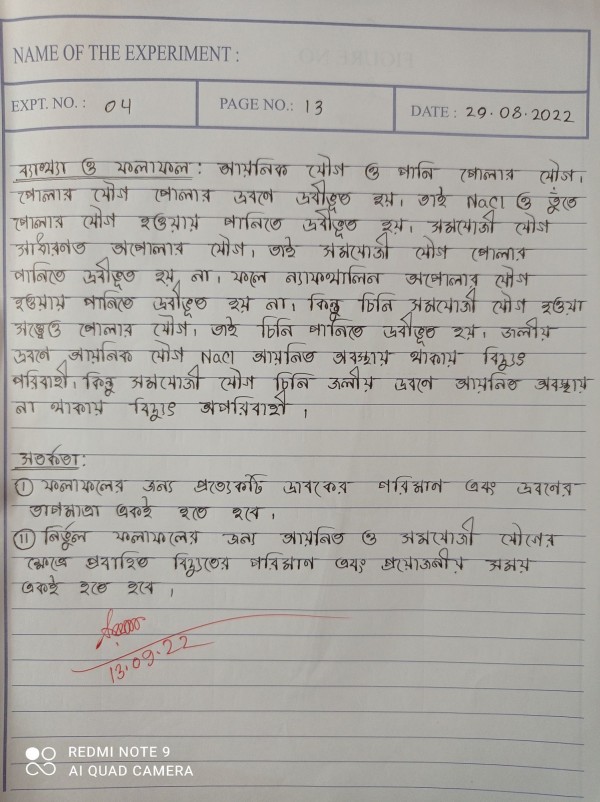 NAME OF THE EXPERIMENT :
EXPT. NO. : 04
PAGE NO.: 13
DATE : 29.08.2022
ব্যাখ্যা ও ফলাফল : আয়নিক যৌগ ও পানি পোলার যৌগ।
পোলার যৌগ পোলার দ্রবণে দ্রবীভূত হয়, তাই NaCl ও তুঁতে
পোলার যৌগ হওয়ায় পানিতে দ্রবীভূত হয়। সমযোজী যৌগ
সাধারণত অপোলার যৌগ, তাই সমযোজী যৌগ পোলার
পানিতে দ্রবীভূত হয় না। ফলে ন্যাফথালিন অপোলার যৌগ
হওয়ায় পানিতে দ্রবীভূত হয় না। কিন্তু চিনি সমযোজী যৌগ হওয়া
সত্ত্বেও পোলার যৌগ, তাই চিনি পানিতে দ্রবীভূত হয়। জলীয়
দ্রবণে আয়নিক যৌগ NaCl আয়নিত অবস্থায় থাকায় বিদ্যুৎ
পরিবাহী। কিন্তু সমযোজী যৌগ চিনি জলীয় দ্রবণে আয়নিত অবস্থায়
না থাকায় বিদ্যুৎ অপরিবাহী।
সতর্কতা :
(i) ফলাফলের জন্য প্রত্যেকটি দ্রাবকের পরিমান এবং দ্রবনের
তাপমাত্রা একই হতে হবে।
(ii) নির্ভুল ফলাফলের জন্য আয়নিত ও সমযোজী যৌগের
ক্ষেত্রে প্রবাহিত বিদ্যুতের পরিমান এবং প্রয়োজনীয় সময়
একই হতে হবে।
13.09.22
REDMI NOTE 9
AI QUAD CAMERA